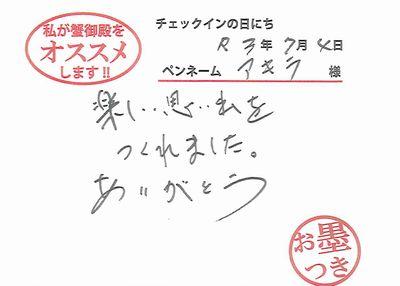 私が蟹御殿を
オススメ
します!!
チェックインの日にち
R3年7月4日
ペンネーム アキラ 様
楽しい思い
つくれました。
ありがとう
お墨
つき